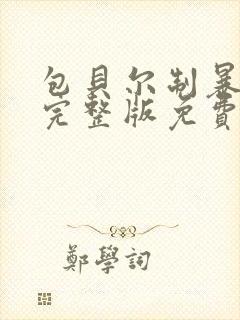 包貝尔制暴
完整版免費
鄭學詞